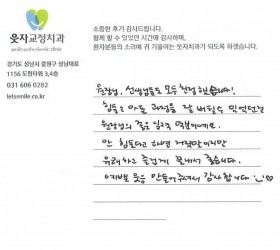 소중한 후기 감사드립니다.
함께 할 수 있었던 시간에 감사하며,
환자분들의 소리에 귀 기울이는 웃자치과가 되도록 하겠습니다.
웃자교정치과
경기도 성남시 중원구 성남대로
1156 도정타워 3,4층
031 606 0282
letssmile.co.kr
원장님, 선생님들도 모두 친절하셨습니다!
힘들고 아픈 과정을 잘 버틸수 있었던건
원장님의 좋은 실력 덕분이에요.
안 힘들다고 하면 거짓말이지만
유쾌하고 즐겁게 보내서 좋습니다.
예쁘게 웃음 만들어주셔서 감사합니다